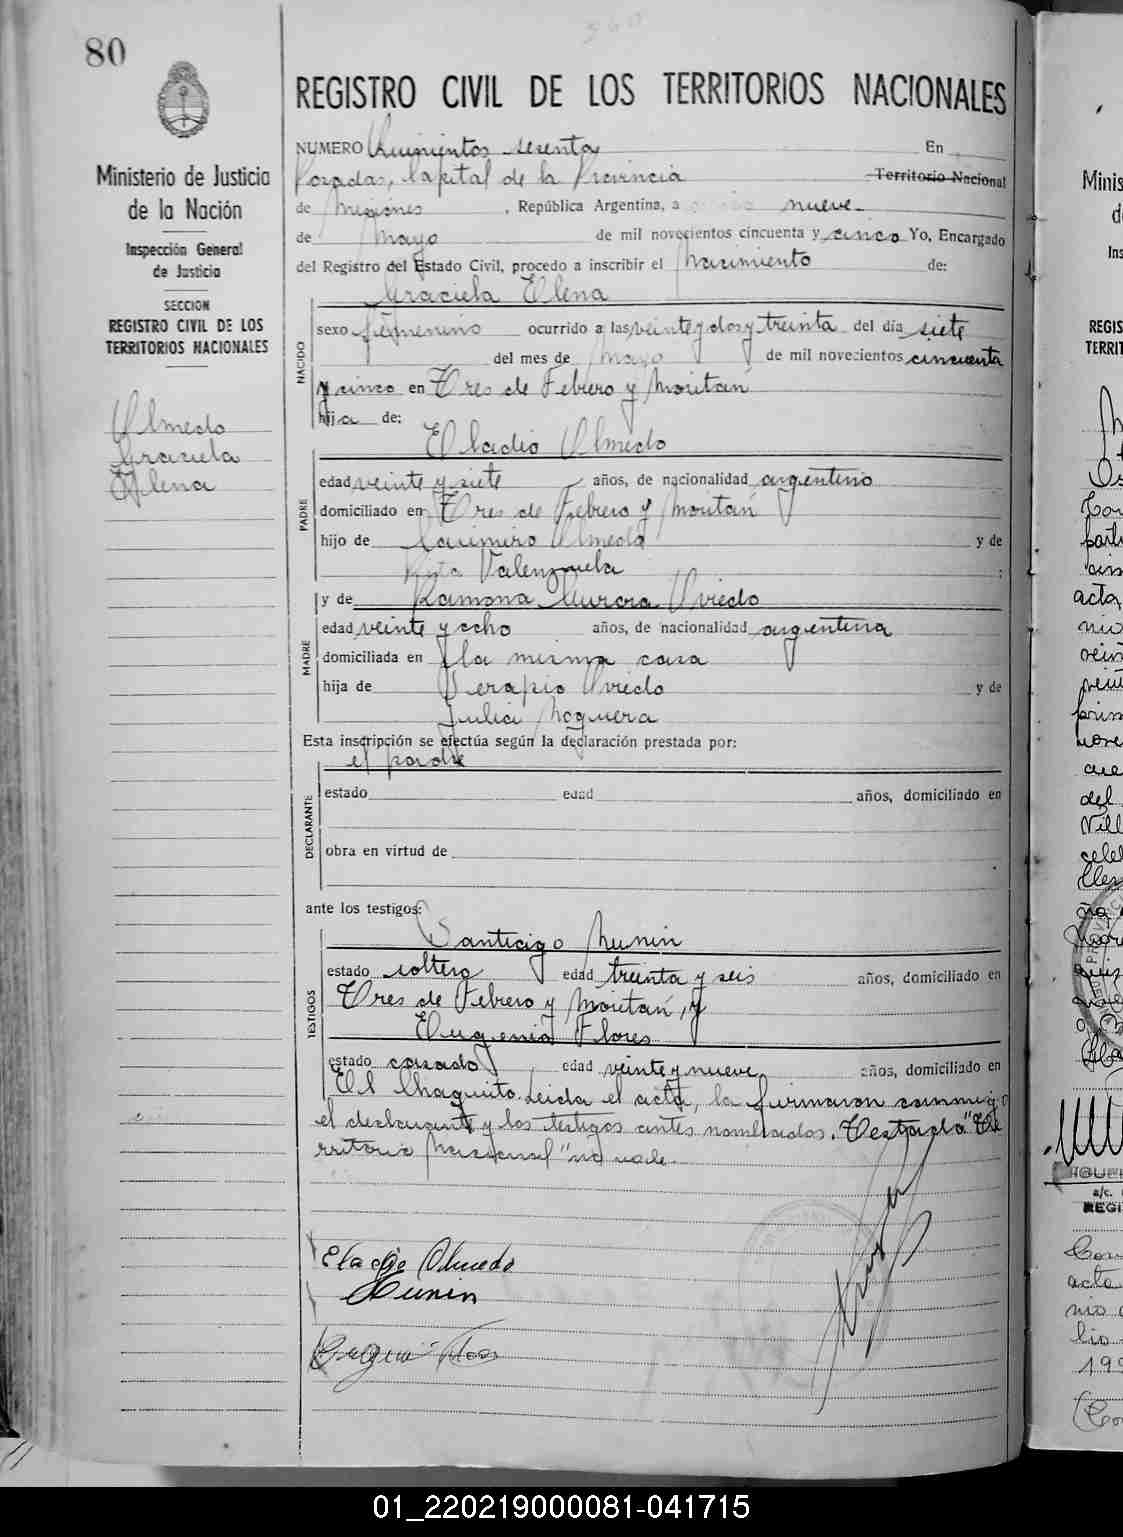 80
560
REGISTRO CIVIL DE LOS TERRITORIOS NACIONALES
Ministerio de Justicia
de la Nación
Inspección General
de Justicia
SECCION
REGISTRO CIVIL DE LOS
TERRITORIOS NACIONALES
Olmedo
Graciela
Elena
NUMERO Quinientos sesenta En
Posadas, Capital de la Provincia Territorio Nacional
de Misiones, República Argentina, a nueve
de Mayo de mil novecientos cincuenta y cinco Yo, Encargado
del Registro del Estado Civil, procedo a inscribir el Nacimiento de:
Graciela Elena
NACIDO
sexo femenino ocurrido a las veinte y dos y treinta del día siete
del mes de Mayo de mil novecientos cincuenta
y cinco en Tres de Febrero y Moritán
hija de:
Eladio Olmedo
PADRE
edad veinte y siete años, de nacionalidad argentino
domiciliado en Tres de Febrero y Moritán
hijo de Casimiro Olmedo y de
Valenzuela :
y de Ramona Aurora Oviedo
MADRE
edad veinte y ocho años, de nacionalidad argentina
domiciliada en la misma casa
hija de Serapio Oviedo y de
Julia Noguera
Esta inscripción se efectúa según la declaración prestada por:
el padre
DECLARANTE
estado edad años, domiciliado en
obra en virtud de
ante los testigos:
Santiago Nunin
TESTIGOS
estado soltero edad treinta y seis años, domiciliado en
Tres de Febrero y Moritán, y
Eugenio Flores
estado casado edad veinte y nueve años, domiciliado en
El Chaquito. Leida el acta, la firmaron conmigo
el declarante y los testigos antes nombrados. Testado "Te
rritorio Nacional" no vale.
Eladio Olmedo
Nunin
01_220219000081-041715